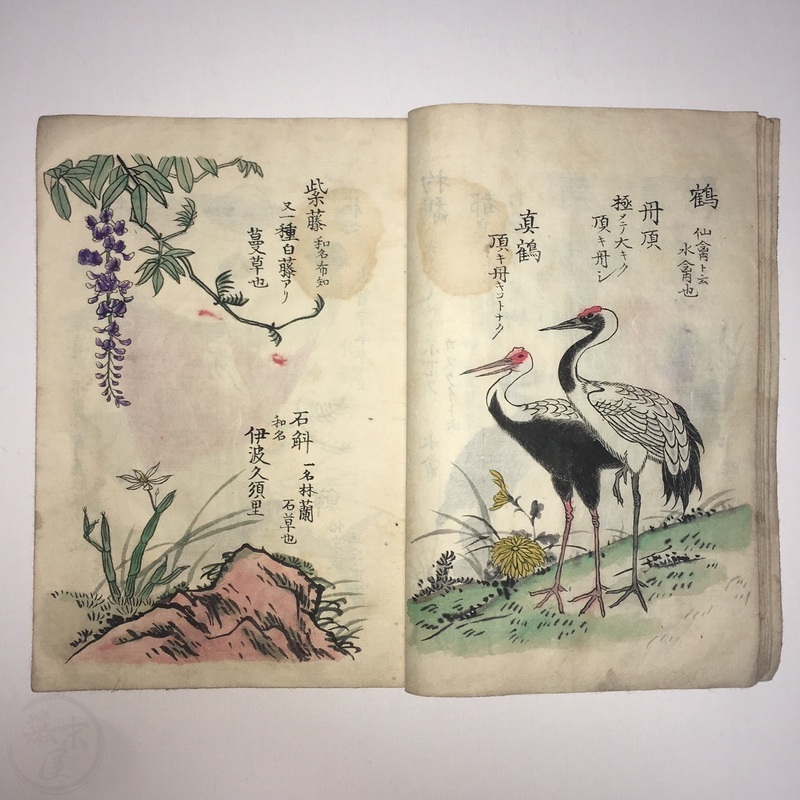 鶴
仙禽ト云
水禽也
丹頂
極メテ大キク
頂キ丹シ
真鶴
頂キ丹キコトナク
紫藤 和名布知
又一種白藤アリ
蔓草也
石斛 一名林蘭
石草也
和名
伊波久須里
幕末屋